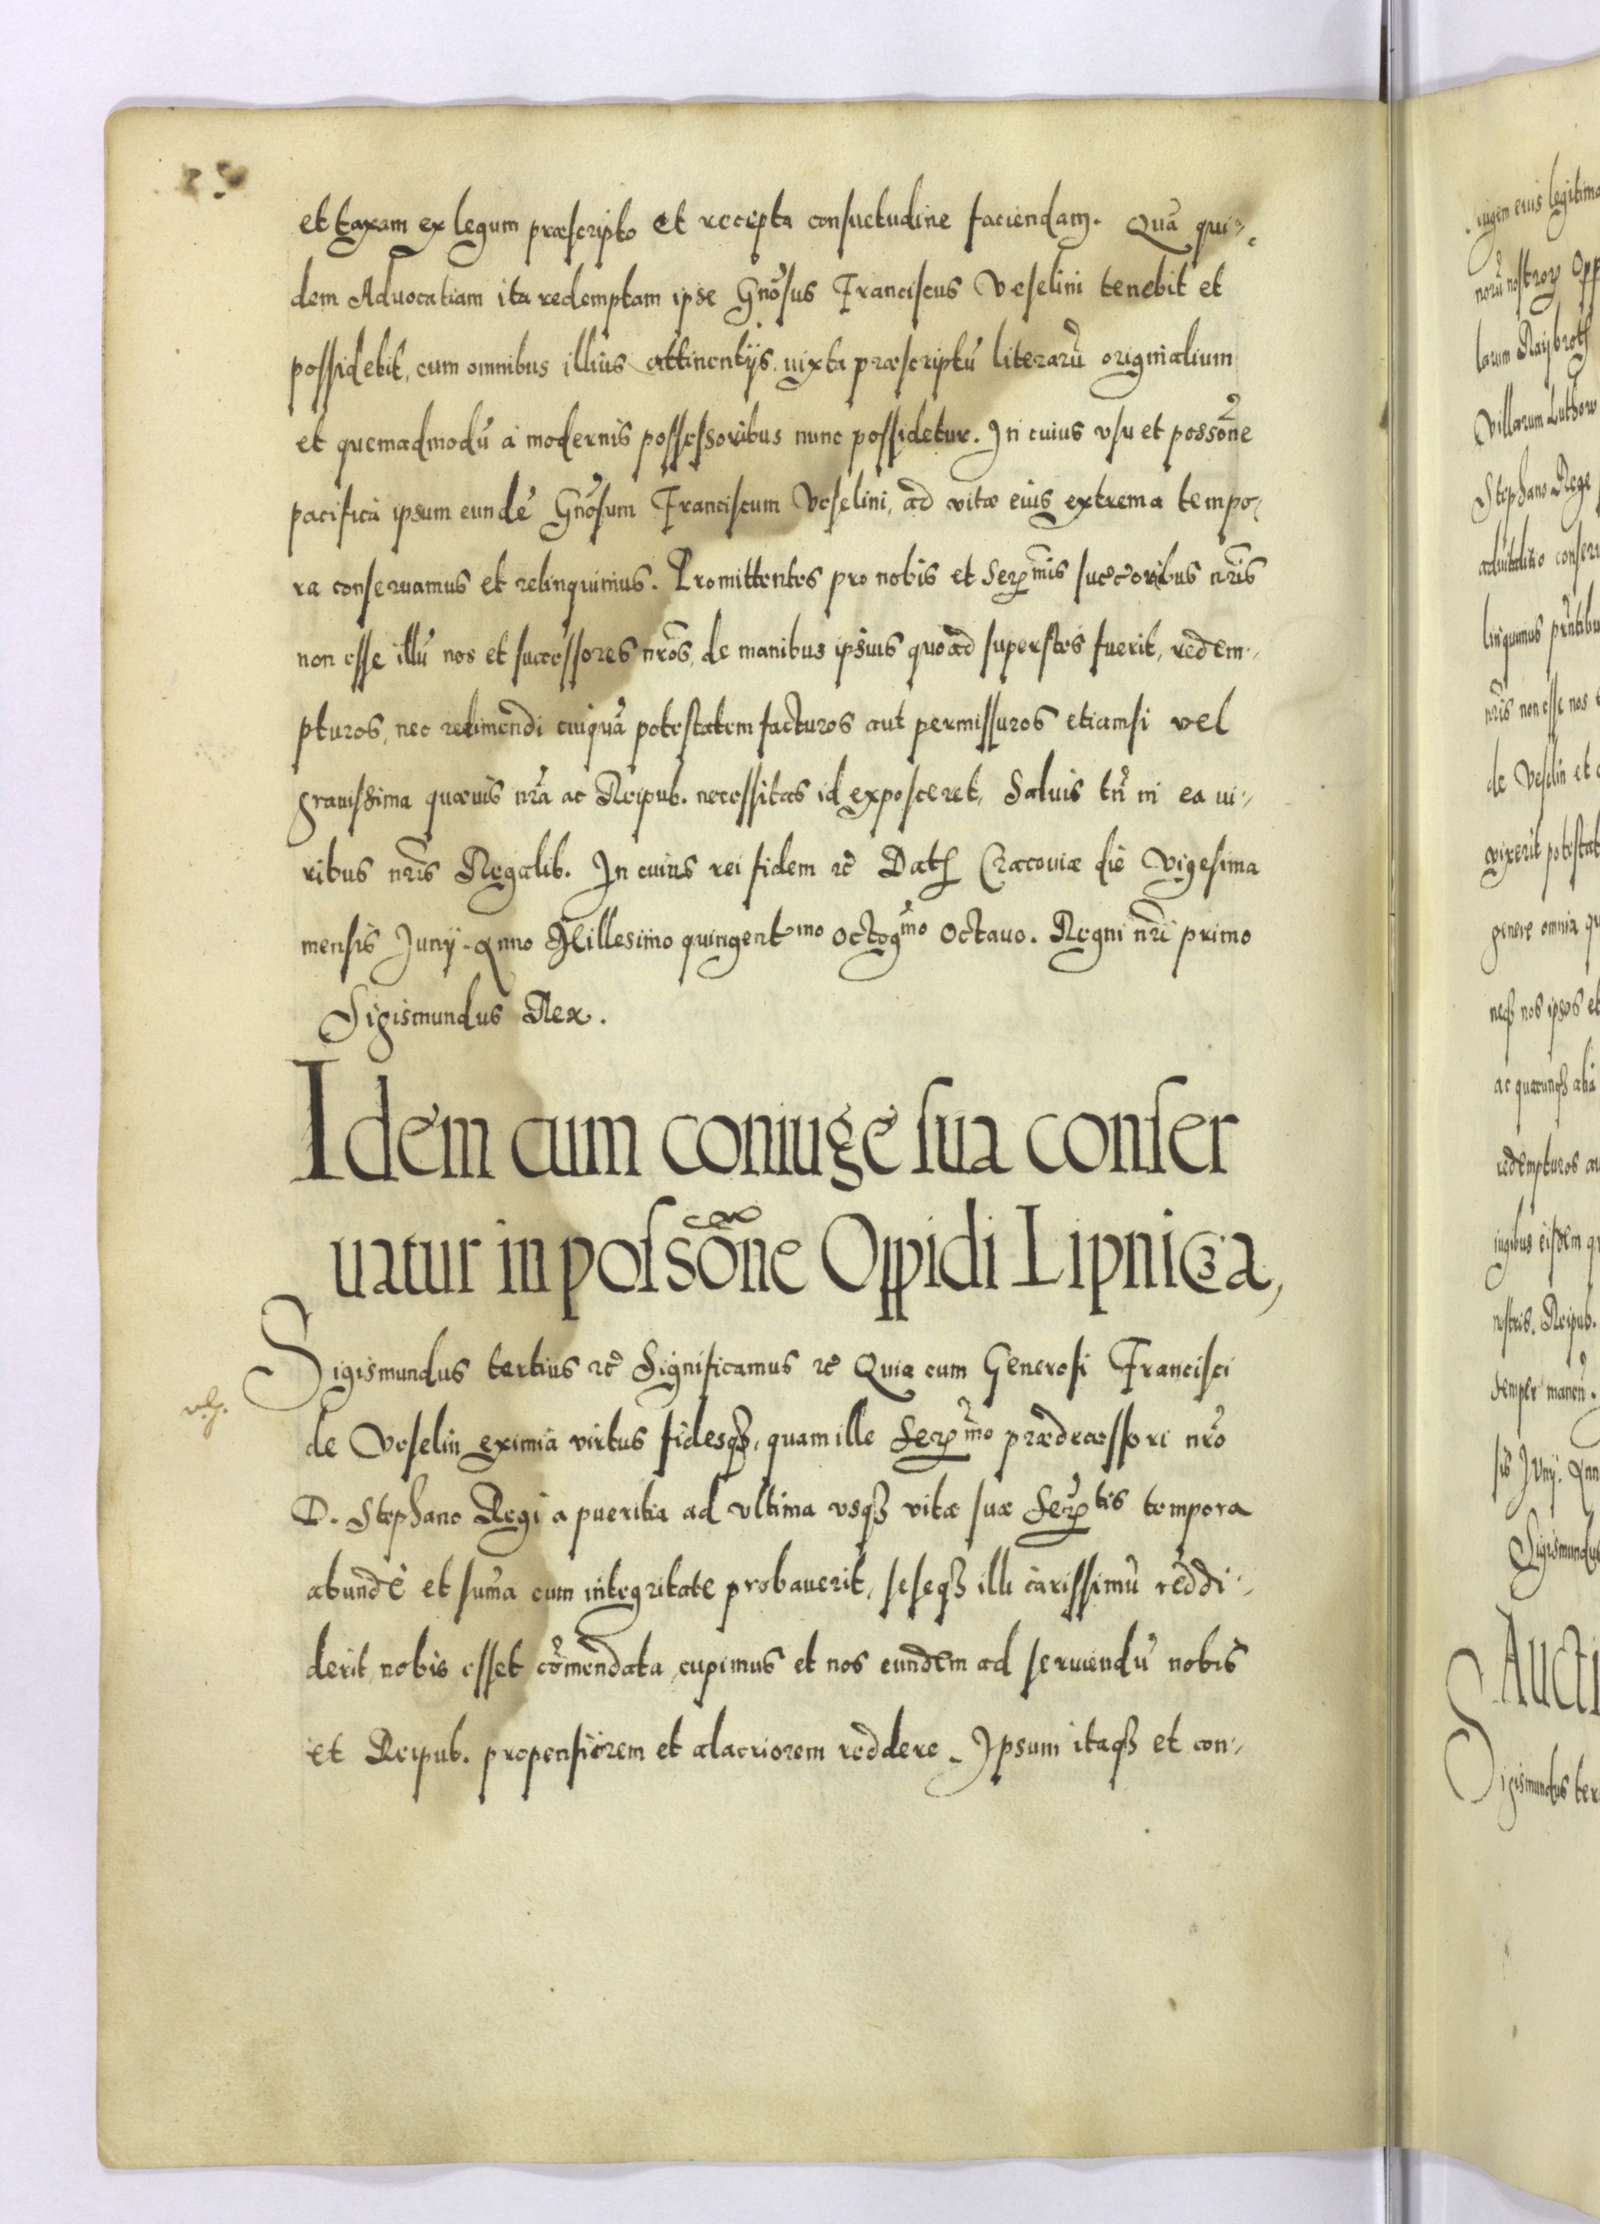 et taxam ex legum præscripto et recepta consuetudine faciendam. Quā qui-
dem Aduocatiam ita redemptam ipse Gnōsus Franciscus Veselini tenebit et
possidebit, cum omnibus illius attinentijs, iuxta præscriptū literarū originalium
et quemadmodū à modernis possessoribus nunc possidetur. In cuius vsu et possōne
pacifica ipsum eundē Gnōsum Franciscum Veselini, ad vitæ eius extrema tempo-
ra conseruamus et relinquimus. Promittentes pro nobis et Serꝫmis successoribus nr̄is
non esse illū nos et successores nr̄os, de manibus ipsius quoad superstes fuerit, redem-
pturos, nec redimendi cuiquā potestatem facturos aut permissuros etiamsi vel
grauissima quæuis nr̄a ac Reipub. necessitas id exposceret, Saluis tn̄ in ea iu-
ribus nr̄is Regalib. In cuius rei fidem ꝛc̄ Datꝭ Cracouiæ die Vigesima
mensis Junij. Anno Millesimo quingentmo octogmo octauo. Regni nr̄i primo
Sigismundus Rex.
Idem cum coniuge sua conser
uatur in possōne Oppidi Lipnicza,
Sigismundus tertius ꝛc̄ Significamus ꝛc̄ Quia cum Generosi Francisci
de Veselin eximia virtus fidesqꝫ, quam ille Serꝫmo prædecessori nr̄o
D. Stephano Regi a pueritia ad vltima vsqꝫ vitæ suæ Serꝫtis tempora
abundè et sum̄a cum integritate probauerit, seseqꝫ illi carissimū reddi-
derit, nobis esset com̄endata, cupimus et nos eundem ad seruiendū nobis
et Reipub. propensiorem et alacriorem reddere. Ipsum itaqꝫ et con-
iugem eius legitima
norū nostrorꝫ Opp
larum Raijbrotꝭ
Villarum Luthow
Stephano Rege
aduitalitio conseru
linquimus
nr̄is non esse nos
de Veselin et
vixerit potestat
genere omnia qu
neqꝫ nos ipsos et
ac quacunqꝫ alia
redempturos au
iugibus eisdem q
nostris. Reipub.
semper manen̄.
sis Junij. Ann
Sigismundus
Aucti
Sigismundus ter